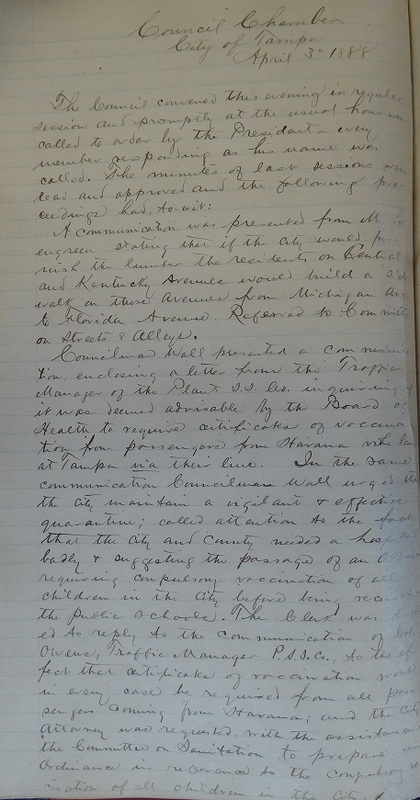 Council Chamber
City of Tampa
April 3" 1888
The Council convened this evening in regular
session and promptly at the usual hour was
called to order by the President - every
member responding as his name was
called. The minutes of last sessions were
read and approved and the following pro-
ceedings had, to-wit:
A communication was presented from
engreen stating that if the City would fur-
nish the lumber the residents on Central
and Kentucky Avenues would build a side
walk on those Avenues from Michigan Av
to Florida Avenue. Referred to Committee
on Streets & Alleys.
Councilman Wall presented a communica-
tion, enclosing a letter from the Traffic
Manager of the Plant S.S. Co. inquiring if
it was deemed advisable by the Board of
Health to require certificates of vaccina
tion from passengers from Havana who land
at Tampa via their line. In the same
communication Councilman Wall urged that
the city maintain a vigilant & effective
quarantine; called attention to the fact
that the City and County needed a hospital
badly & suggesting the passage of an Ordi
requiring compulsory vaccination of all
children in the City before being received
the Public Schools. The Clerk was direct
ed to reply to the communication of
Owens, Traffic Manager P.S.S.Co., to the ef
fect that certificates of vaccination would
in every case be required from all pas
sengers coming from Havana; and the City
Attorney was requested, with the assistance
the Committee on Sanitation to prepare an
Ordinance in reference to the compulsory
cination of all children in the City.